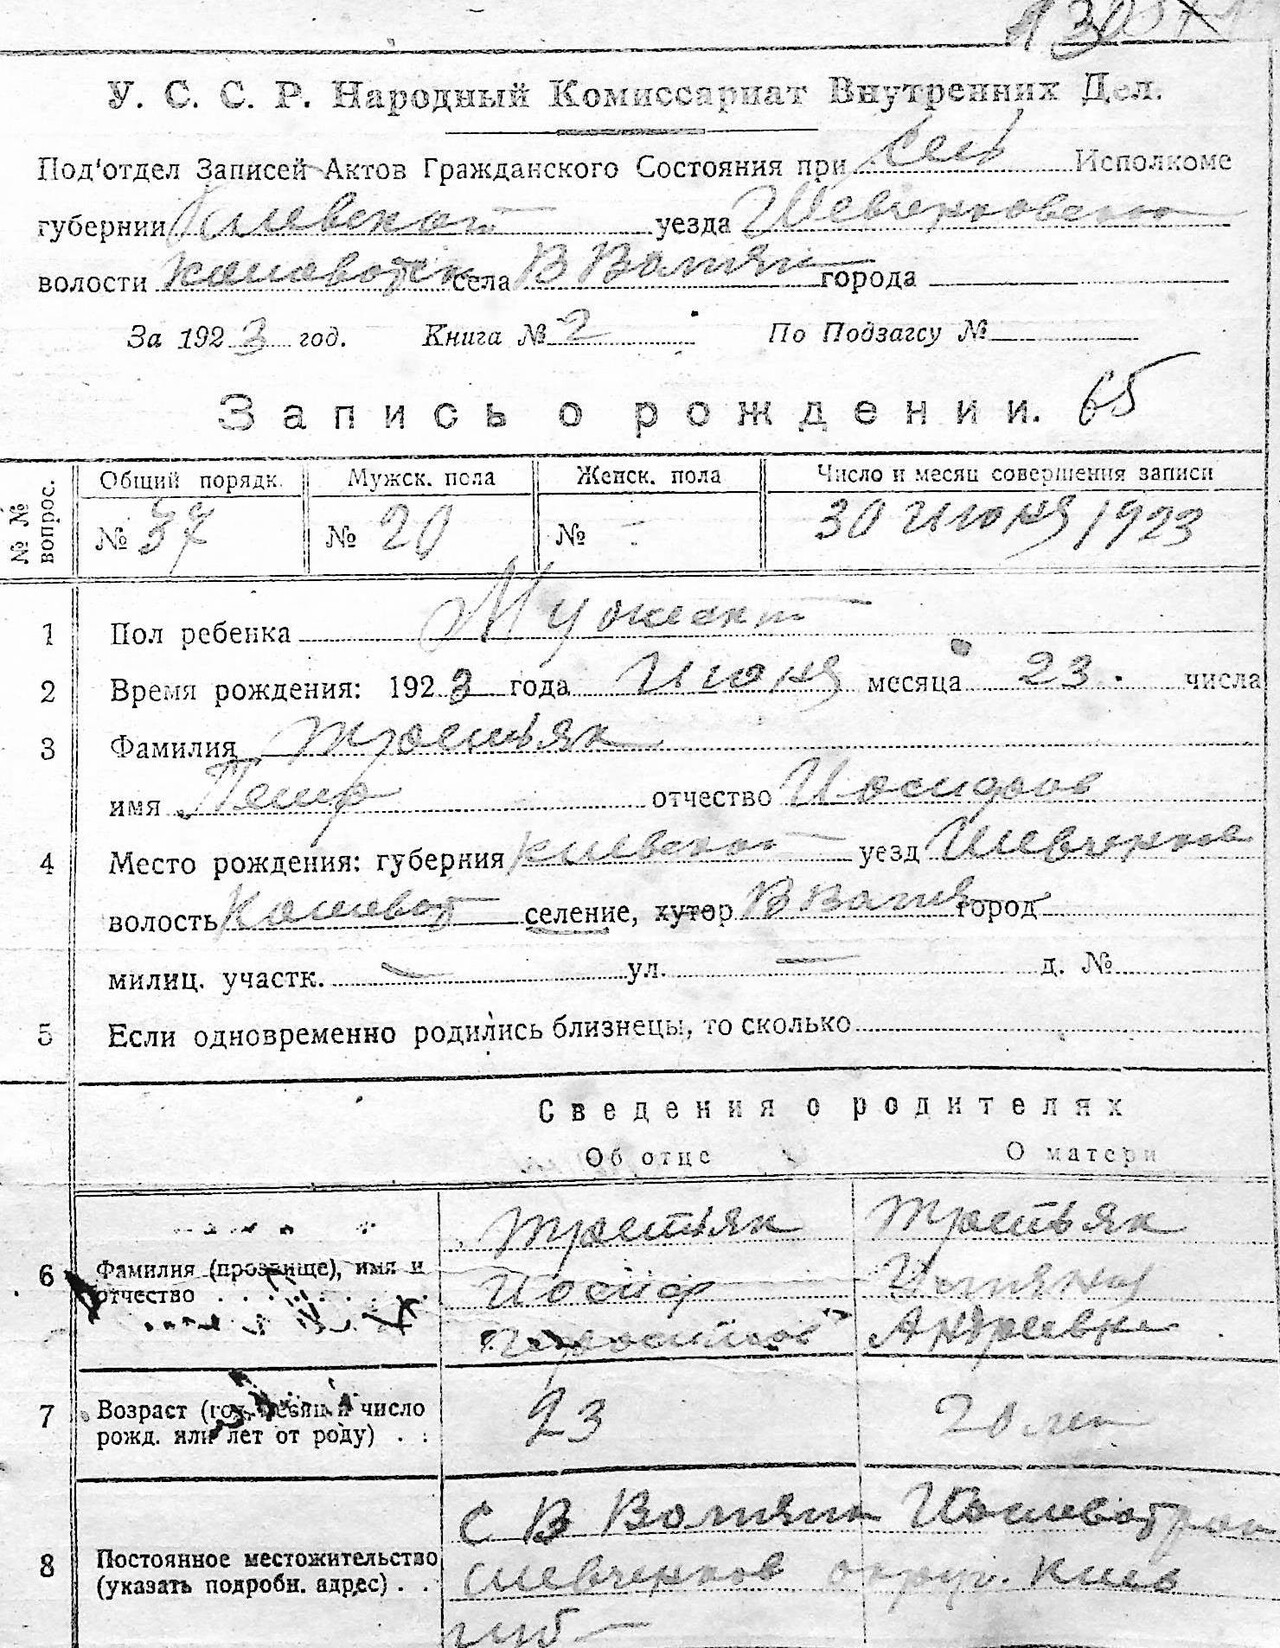 У. С. С. Р. Народный Комиссариат Внутренних Дел.
Под'отдел Записей Актов Гражданского Состояния при Сель Исполкоме
губернии Киевской уезда Шевченковском
волости села В Вотян города
За 1923 год. Книга № 2 По Подзагсу №
Запись о рождении. 65
№ № вопрос. Общий порядк. Мужск. пола Женск. пола Число и месяц совершения записи
№ 37 № 20 № - 30 июня 1923
1 Пол ребенка Мужеск
2 Время рождения: 1923 года Июня месяца 23. числа
3 Фамилия Тростьяк
имя Петр отчество Иосифов
4 Место рождения: губерния Киевской уезд Шевченков
волость селение, хутор В город
милиц. участк. — ул. — д. №
5 Если одновременно родились близнецы, то сколько
Сведения о родителях
Об отце О матери
Тростьяк Тростьяк
6 Фамилия (прозвище), имя и Иосиф
отчество . . . Андреевна
7 Возраст (год, месяц и число 23 20 лет
рожд. или лет от роду) . .
С В Вотян
8 Постоянное местожительство Шевченков округ. Киев
(указать подробн. адрес) . .
губ —